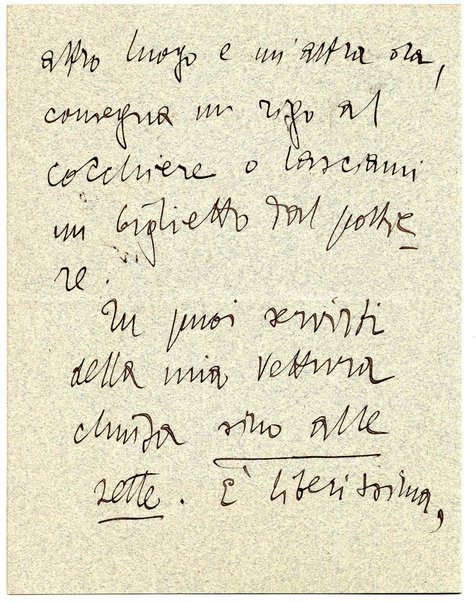 altro luogo e un'altra ora,
consegna un rigo al
cocchiere o lasciami
un biglietto dal portie
re.
Tu puoi servirti
della mia vettura
chiusa sino alle
sette. È liberissima,